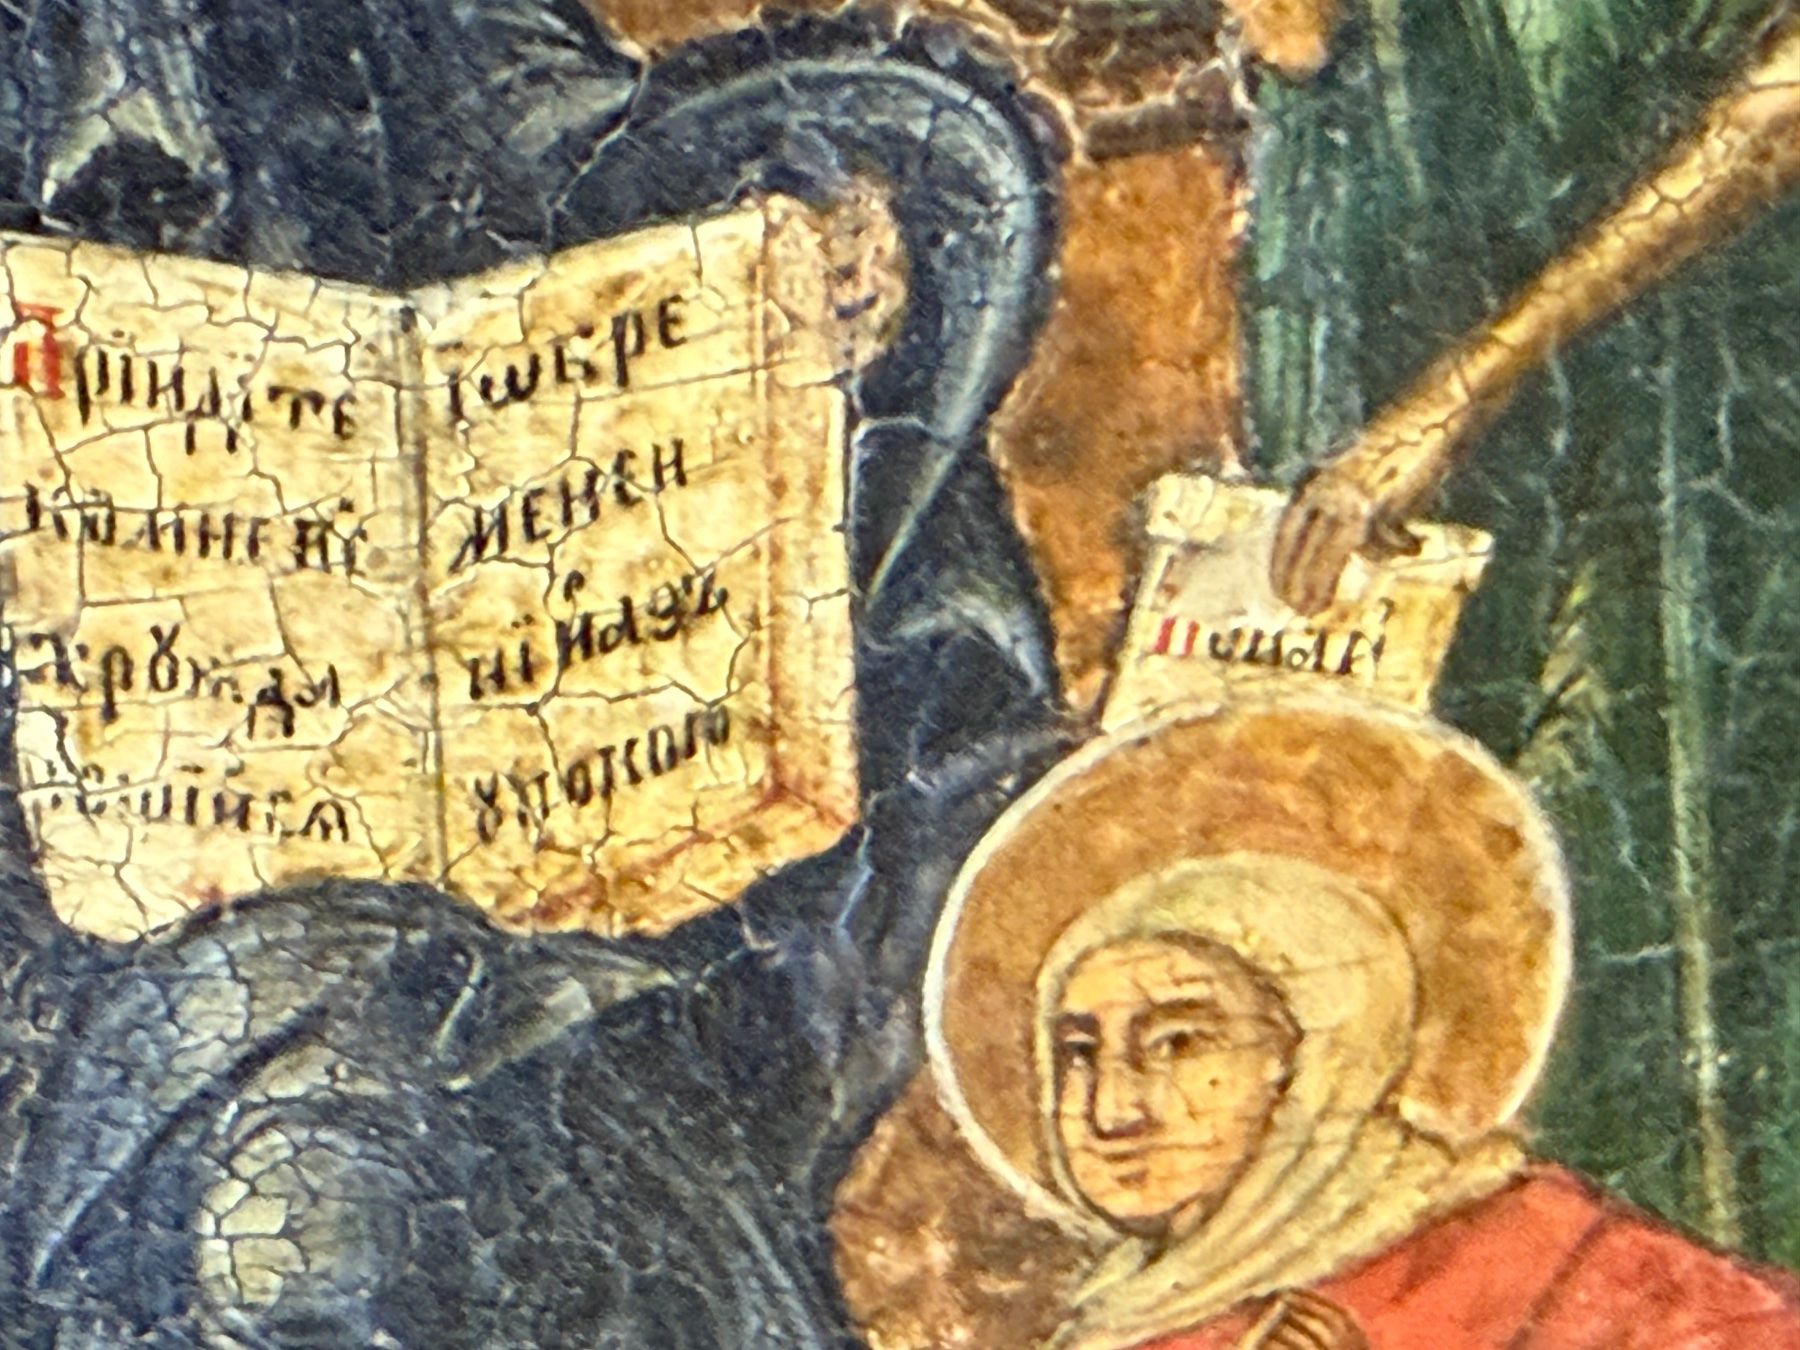 Прїидїте
комневсѣ
трꙋжда
ющїисѧ
їѡбре
менен
нїи азъ
ꙋпокою